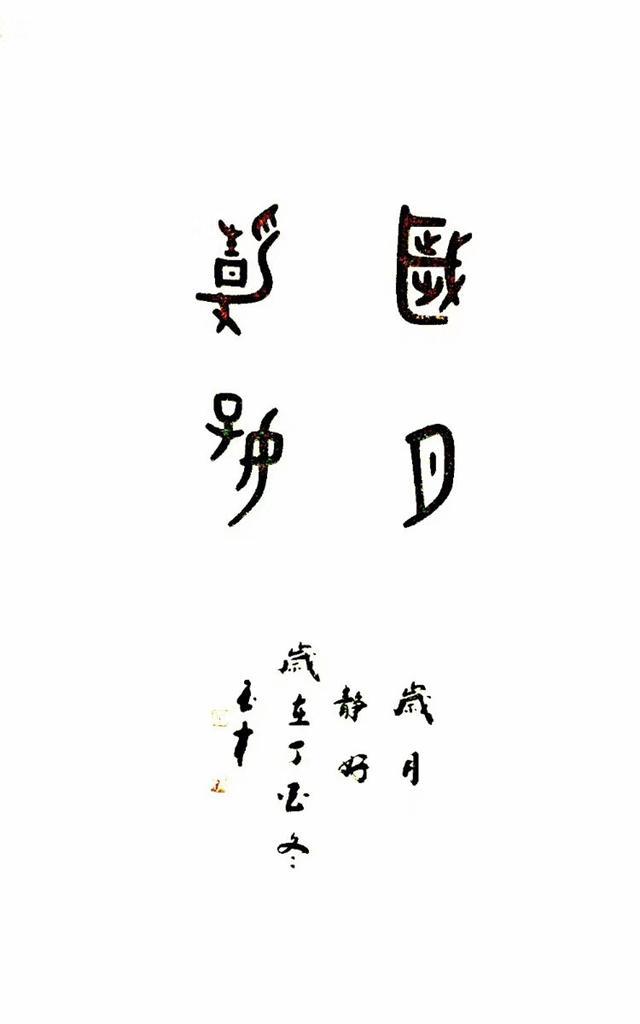 歲月
靜好
歲月
靜好
歲在丁酉冬
玉才